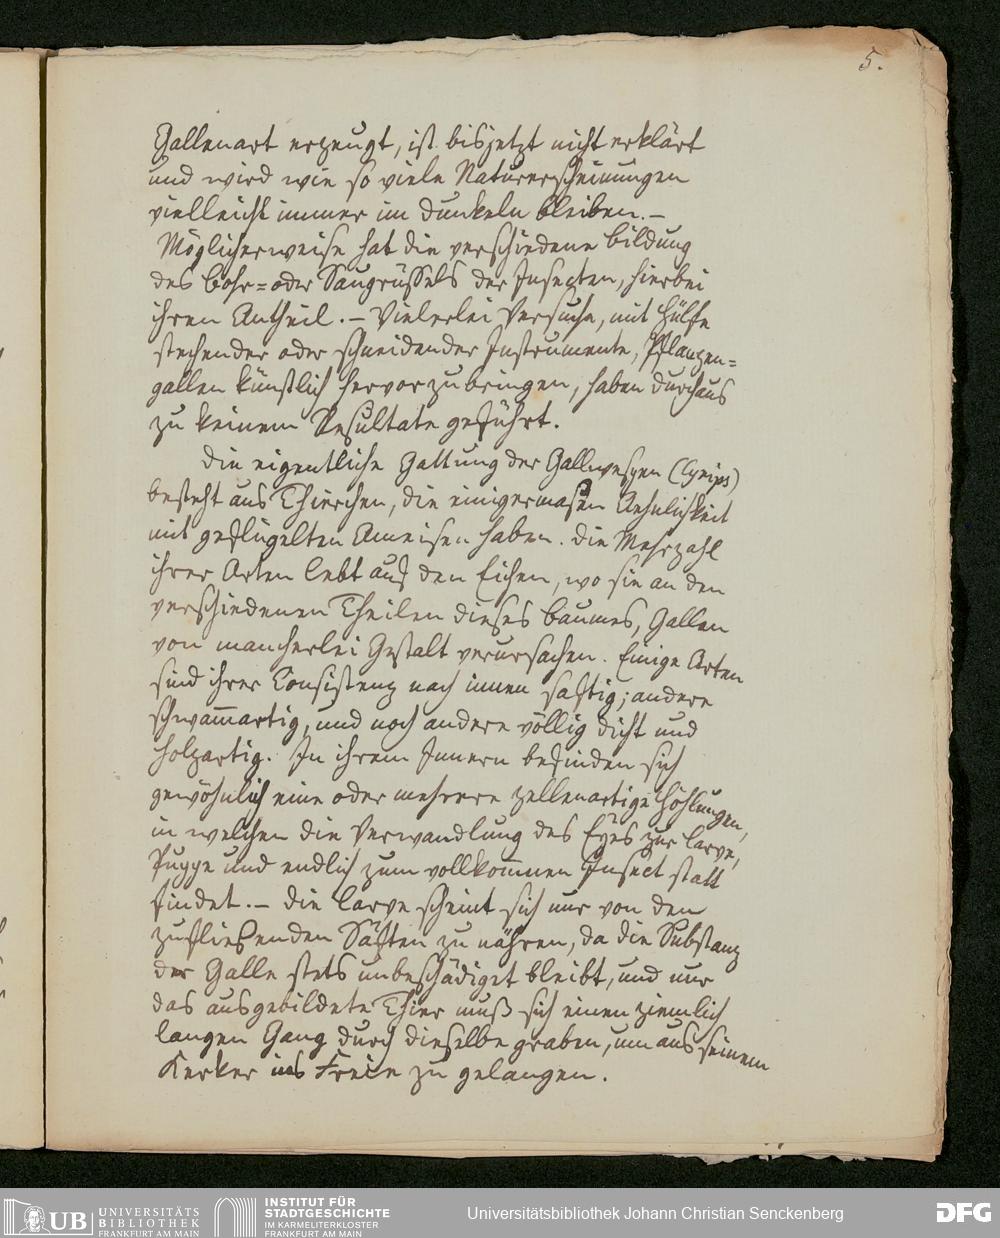 5.
Gallenart erzeugt, ist bisjetzt nicht erklärt
und wird wie so viele Naturerscheinungen
vielleicht immer im Dunkeln bleiben. –
Möglicherweise hat die verschiedene Bildung
des Bohr= oder Saugrüssels der Insecten, hierbei
ihren Antheil. – Vielerlei Versuche, mit Hülfe
stechender oder schneidender Instrumente, Pflanzen=
gallen künstlich hervorzubringen, haben durchaus
zu keinem Resultate geführt.
Die eigentliche Gattung der Gallwespen (Cynips)
besteht aus Thierchen, die einigermasen Aehnlichkeit
mit geflügelten Ameisen haben. Die Mehrzahl
ihrer Arten lebt auf den Eichen, wo sie an den
verschiedenen Theilen dieses Baumes, Gallen
von mancherlei Gestalt verursachen. Einige Arten
sind ihrer Consistenz nach innen saftig; andere
schwam̅artig, und noch andere völlig dicht und
holzartig. In ihrem Innern befinden sich
gewöhnlich eine oder mehrere zellenartige Höhlungen,
in welchen die Verwandlung des Eyes zur Larve,
Puppe und endlich zum vollkom̅nen Insect statt
findet. – Die Larve scheint sich nur von den
zufließenden Säften zu nähren, da die Substanz
der Galle stets unbeschädiget bleibt, und nur
das ausgebildete Thier muß sich einen ziemlich
langen Gang durch dieselbe graben, um aus seinem
Kerker ins Freie zu gelangen.
UB UNIVERSITÄTS
BIBLIOTHEK
FRANKFURT AM MAIN
INSTITUT FÜR
STADTGESCHICHTE
IM KARMELITERKLOSTER
FRANKFURT AM MAIN
Universitätsbibliothek Johann Christian Senckenberg
DFG